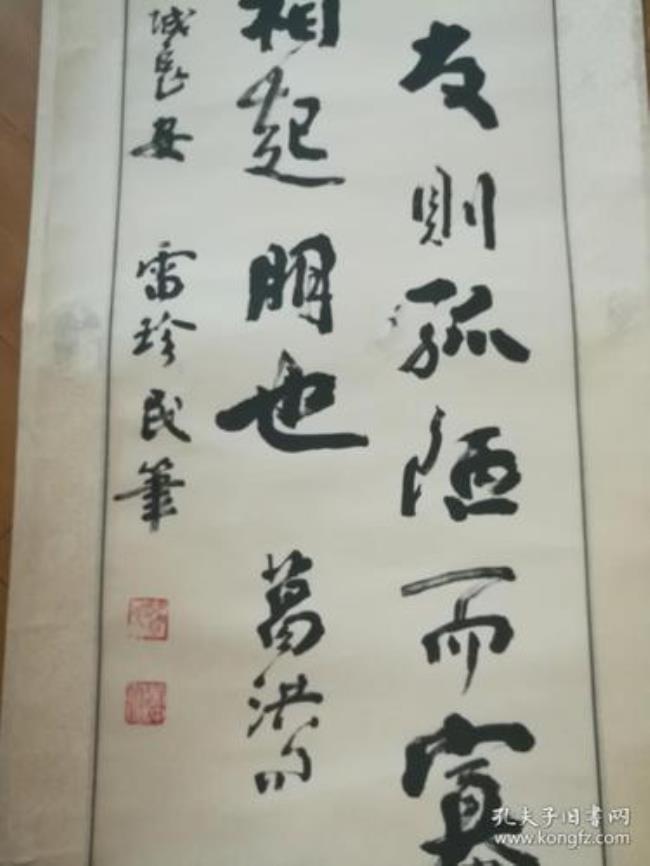 友則孤陋而寡
相起明也 葛洪句
城長安 雷珍民筆
孔夫子旧书网
www.kongfz.com